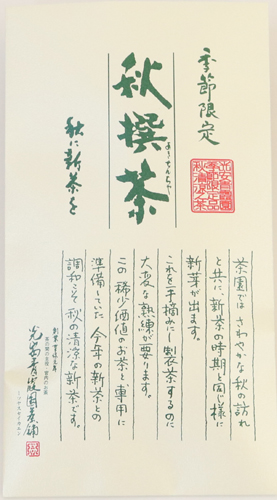 季節限定
秋撰茶
秋に新茶を
茶園では さわやかな秋の訪れ
と共に 新茶の時期と同じ様に
新芽が出ます。
これを手摘みにし製茶するのに
大変な熟練が要ります。
この稀少価値のお茶と、専用に
準備していた 今年の新茶との
調和こそ 秋の清涼な新茶です。